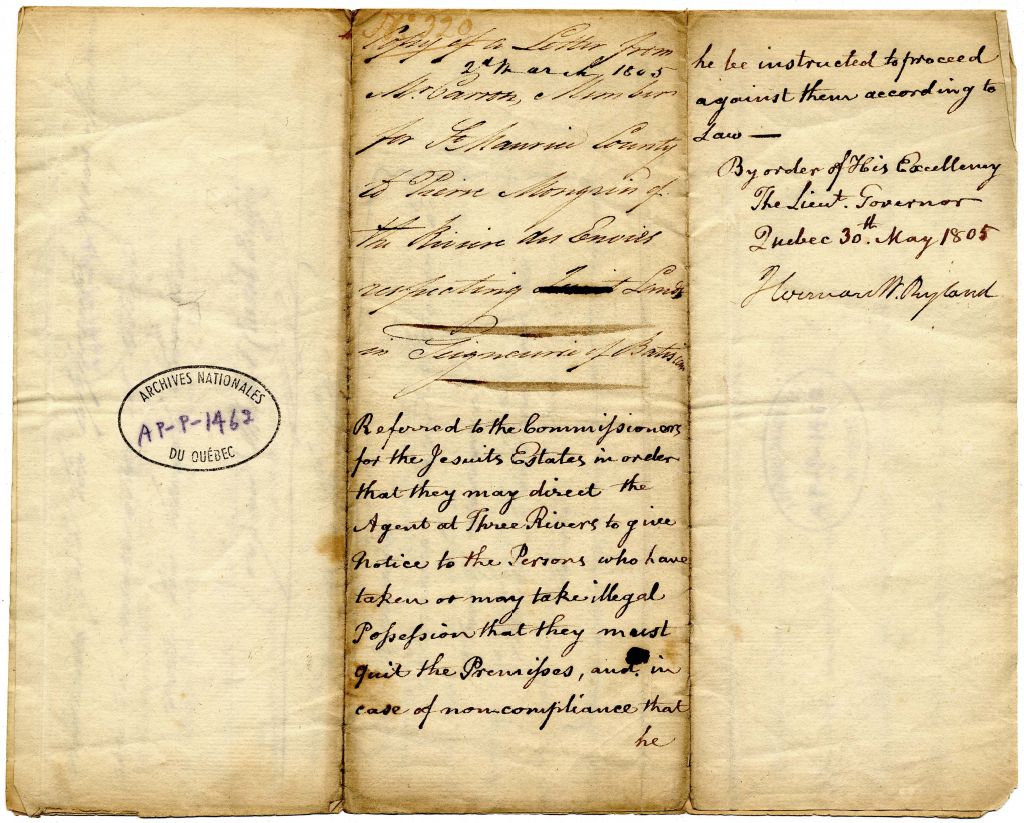 ARCHIVES NATIONALES
AP-P-1462
DU QUÉBEC
No 220
Copy of a Letter from
2d March 1805
Mr Caron, Member
for St Maurice County
to Pierre Mongrin of
the Riviere des Envies
respecting Lands
in Seigneurie of Batiscan
Referred to the Commiſsioners
for the Jesuits Estates in order
that they may direct the
Agent at Three Rivers to give
Notice to the Persons who have
taken or may take illegal
Poſseſsion that they must
quit the Premiſses, and in
case of non-compliance that
he
he be instructed to proceed
against them according to
Law —
By order of His Excellency
The Lieut. Governor
Quebec 30th. May 1805
Herman W. Ryland